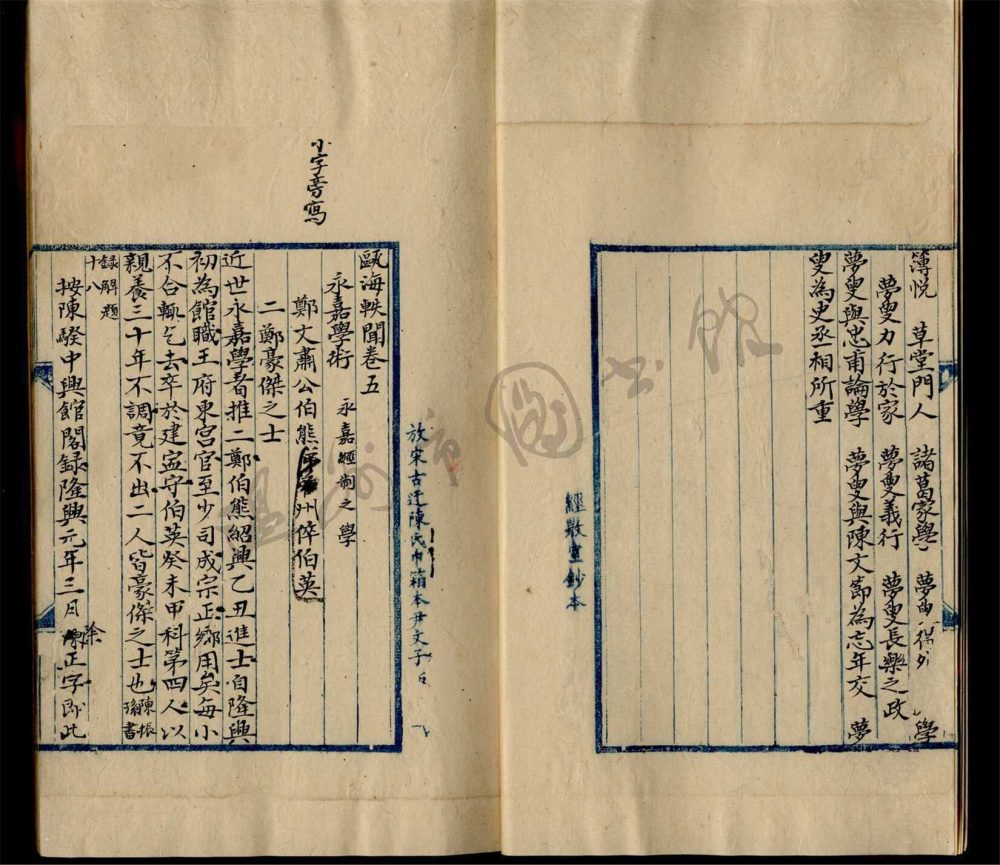 簿悅　草堂門人　諸葛家學　夢叟　學
夢叟力行於家　夢叟義行　夢叟長樂之政
夢叟與忠甫論學　夢叟與陳文節為忘年交　夢
叟為史丞相所重
經敬堂鈔本
放宋古迂陳氏巾箱本尹文子
小字旁寫
甌海軼聞卷五
永嘉學術　永嘉經制之學
鄭文肅公伯熊　州倅伯英
二鄭豪傑之士
近世永嘉學者推二鄭伯熊紹興乙丑進士自隆興
初為館職王府東宮官至少司成宗正鄉用矣每小
不合輒乞去卒於建寍守伯英癸未甲科第四人以
親養三十年不調竟不出二人皆豪傑之士也陳振孫書
錄解題十八
按陳騤中興館閣録隆興元年三月除正字即此
溫州市圖書館